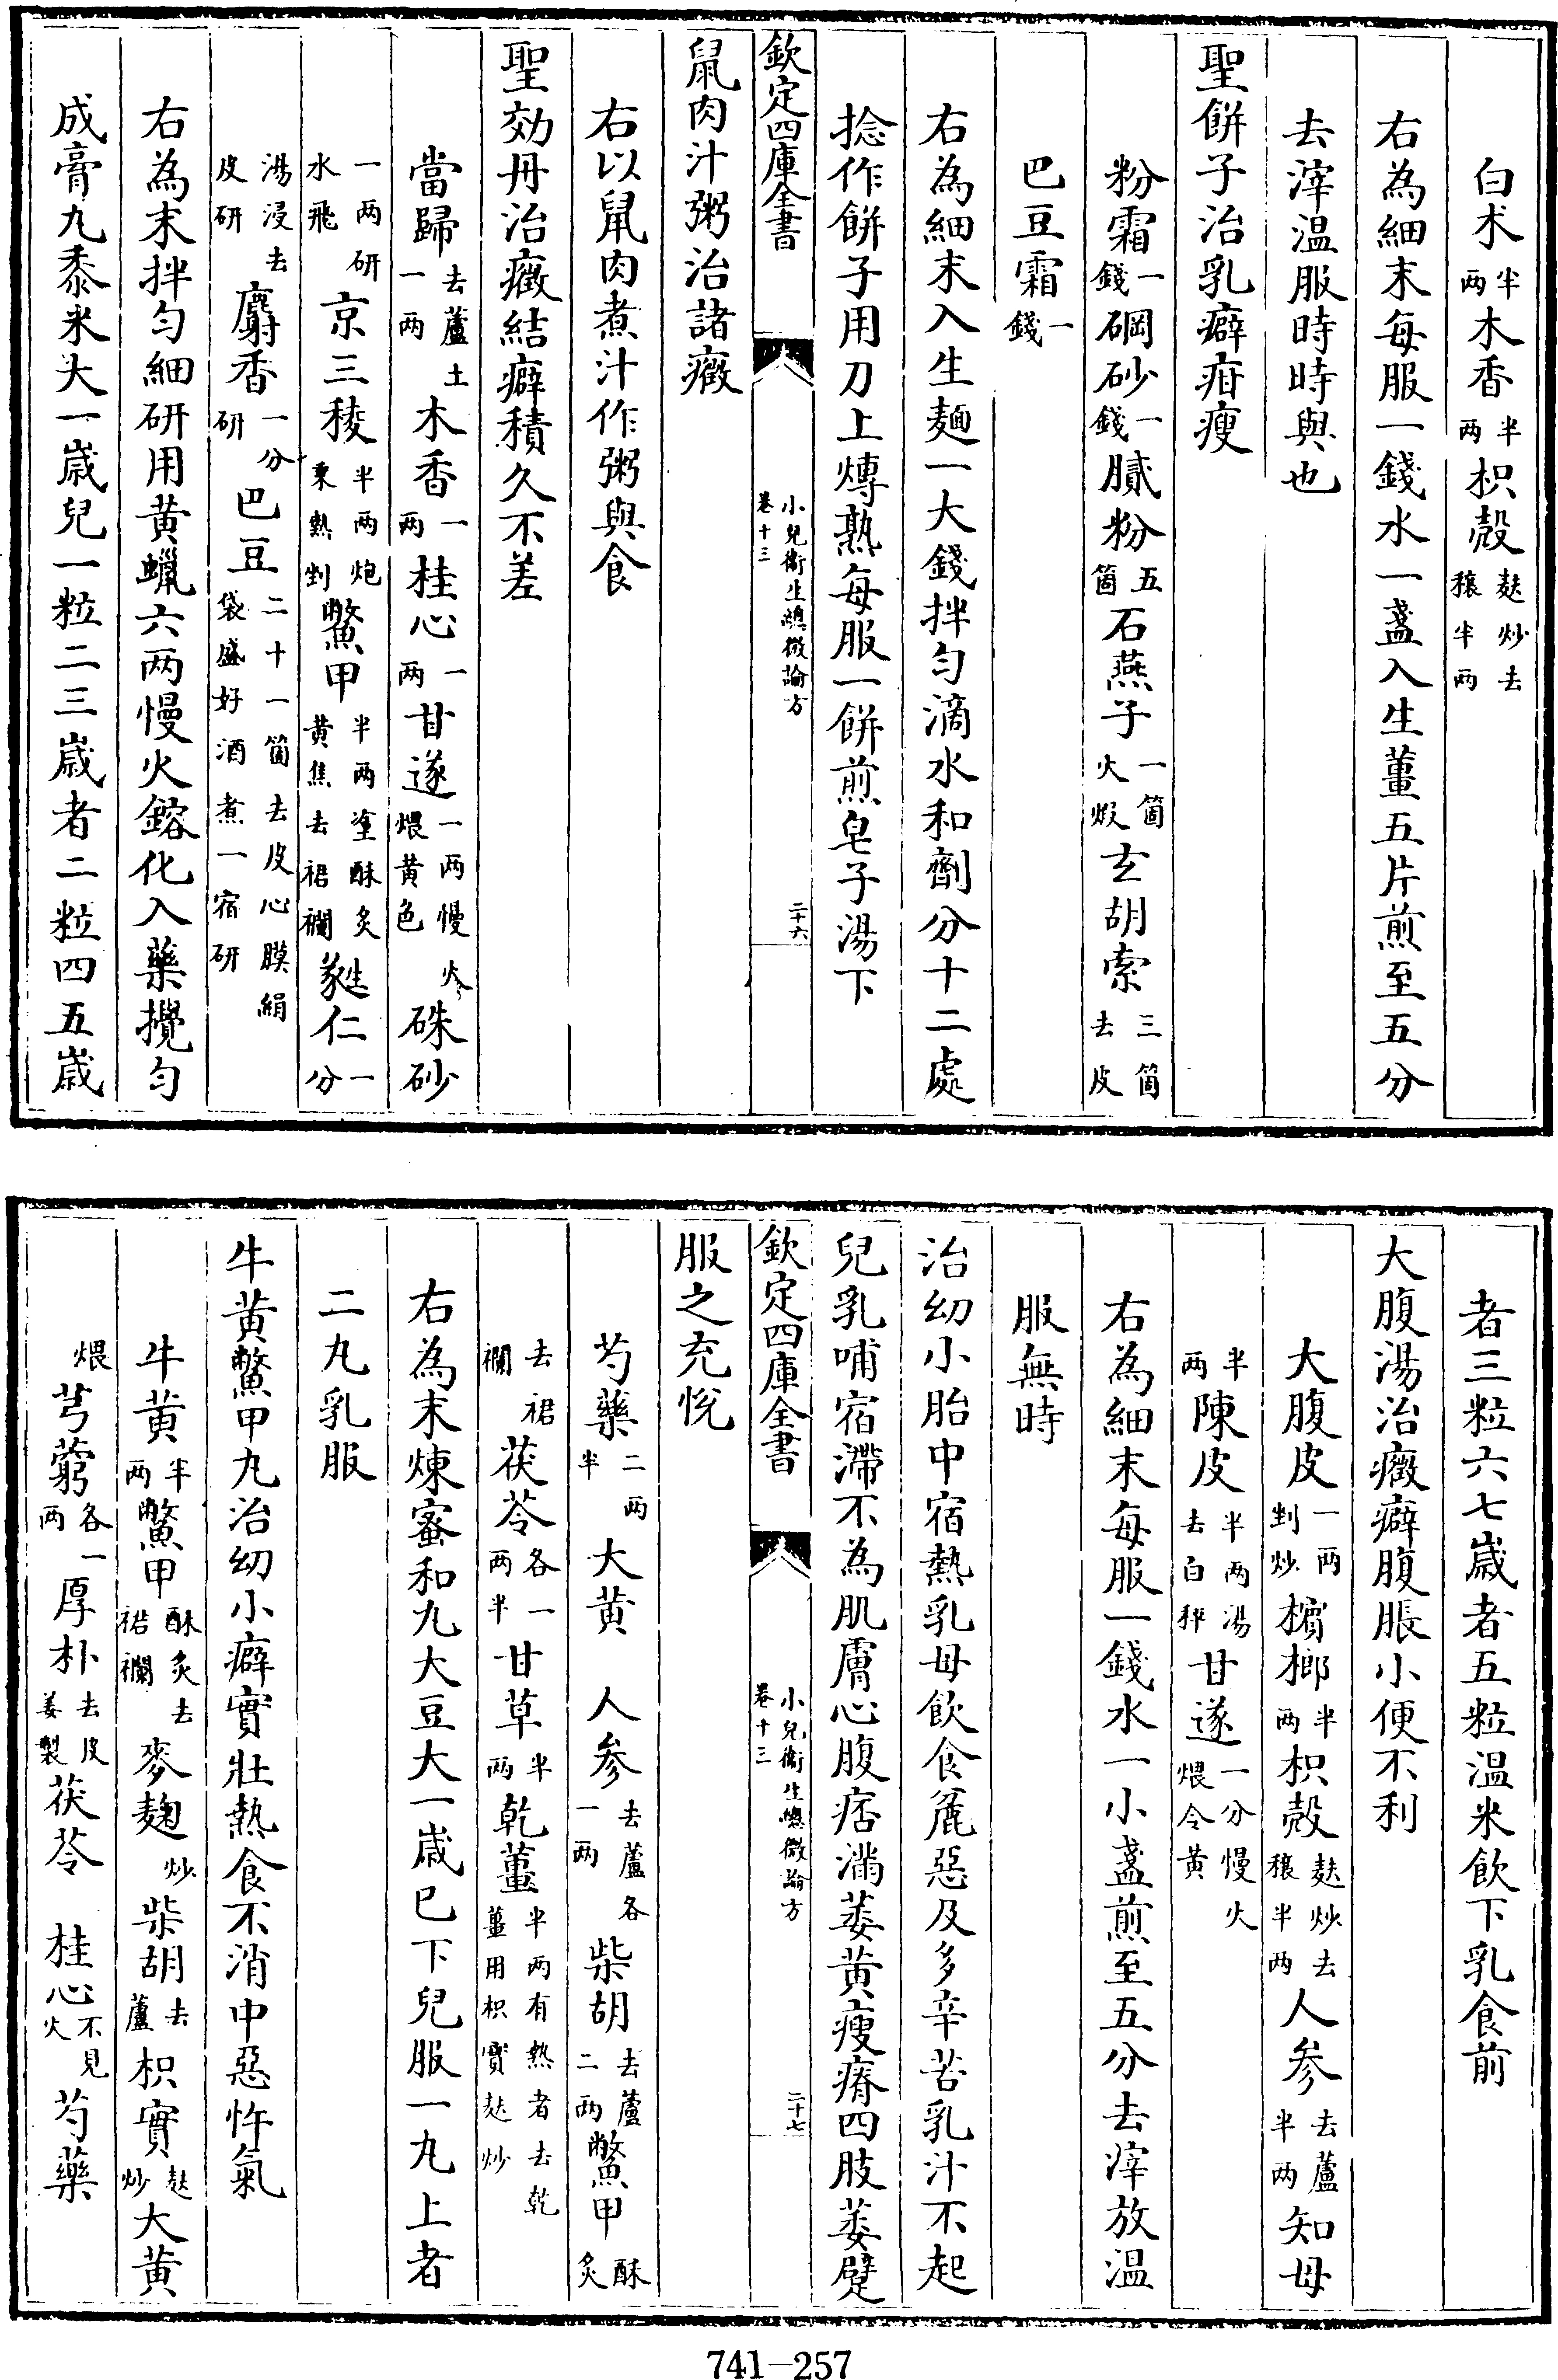 白术半两木香半两枳殻麸炒去穰半两
右為細末每服一錢水一盞入生薑五片煎至五分
去滓温服時時與也
聖餅子治乳癖疳瘦
粉霜一錢硇砂一錢膩粉五箇石燕子一箇火煅玄胡索三箇去皮
巴豆霜一錢
右為細末入生麺一大錢拌勻滴水和劑分十二處
捻作餅子用刀上熁熟每服一餅煎皂子湯下
欽定四庫全書 小兒衞生總微論方 卷十三 二十六
鼠肉汁粥治諸癥
右以鼠肉煮汁作粥與食
聖効丹治癥結癖積久不差
當歸去蘆土一两木香一两桂心一两甘遂一两慢火煨黄色硃砂
一两研水飛京三稜半两炮乗熱剉鱉甲半两塗酥炙黄焦去裙襴蕤仁一分
湯浸去皮研麝香一分研巴豆二十一箇去皮心膜絹袋盛好酒煮一宿研
右為末拌勻細研用黄蠟六两慢火鎔化入藥攪勻
成膏丸黍米大一歳兒一粒二三歳者二粒四五歳
者三粒六七歳者五粒温米飲下乳食前
大腹湯治癥癖腹脹小便不利
大腹皮一两剉炒檳榔半两枳殻麸炒去穰半两人參去蘆半两知母
半两陳皮半两湯去白秤甘遂一分慢火煨令黄
右為細末每服一錢水一小盞煎至五分去滓放温
服無時
治幼小胎中宿熱乳母飲食麄惡及多辛苦乳汁不起
兒乳哺宿滯不為肌膚心腹痞滿萎黄瘦瘠四肢萎躄
欽定四庫全書 小兒衞生總微論方 卷十三 二十七
服之充悅
芍藥二两半 大黄 人參去蘆各一两 柴胡去蘆二两鱉甲酥炙
去裙襴茯苓各一两半甘草半两乾薑半两有熱者去乾薑用枳實麸炒
右為末煉蜜和丸大豆大一歳已下兒服一丸上者
二丸乳服
牛黄鱉甲丸治幼小癖實壯熱食不消中惡忤氣
牛黄半两鱉甲酥炙去裙襴麥麹炒柴胡去蘆枳實麸炒大黄
煨芎藭各一两厚朴去皮姜製茯苓 桂心不見火芍藥
741-257